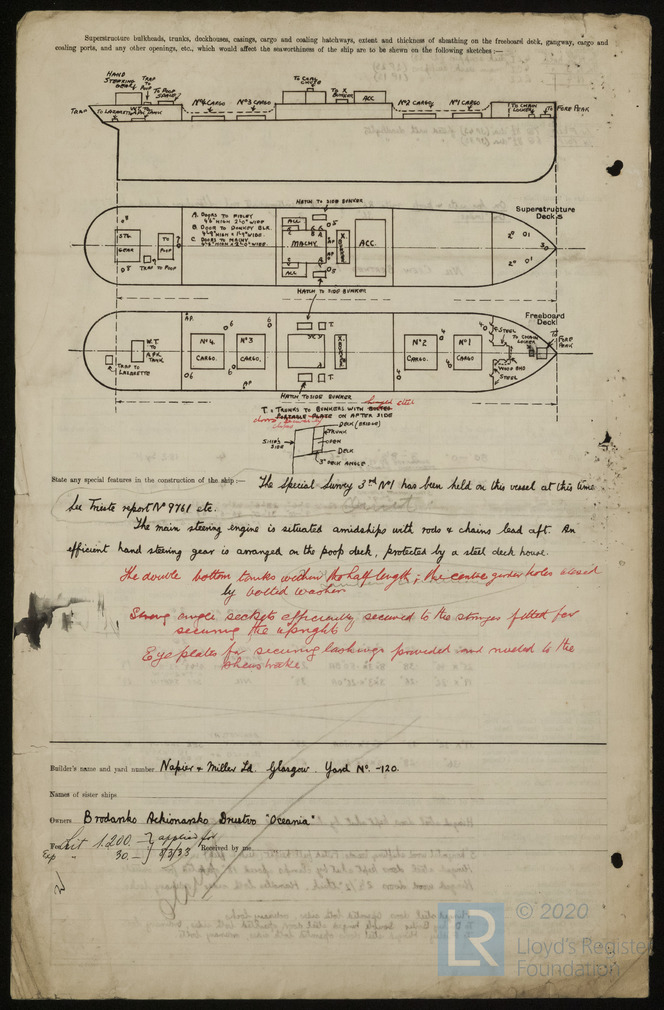 Superstructure bulkheads, trunks, deckhouses, casings, cargo and coaling hatchways, extent and thickness of sheathing on the freeboard deck, gangway, cargo and
coaling ports, and any other openings, etc., which would affect the seaworthiness of the ship are to be shewn on the following sketches:—
HAND STEERING GEAR
TRAP TO POOP
TO POOP SPACE
TRAP TO LAZARETTE
W.T. TO A.PK TANK
Nº4 CARGO
Nº3 CARGO
TO X BUNKER
ACC
Nº2 CARGO
Nº1 CARGO
TO CHAIN LOCKER
TO FORE PEAK
HATCH TO SIDE BUNKER
Superstructure Decks
A. DOORS TO FIDLEY
4'6" HIGH 2'0" WIDE
B. DOOR TO DONKEY BLR.
C. DOORS TO MACHY.
STG GEAR
TO POOP
TRAP TO POOP
ACC
MACHY.
X BUNKER
ACC.
ACC
HATCH TO SIDE BUNKER
Freeboard Deck
A.P.
W.T. TO A.PK TANK
TRAP TO LAZARETTE
Nº4 CARGO.
Nº3 CARGO.
X. BUNKER
Nº2 CARGO.
Nº1 CARGO.
STEEL
TO CHAIN LOCKER
TO FORE PEAK
WOOD BHD
STEEL
HATCH TO SIDE BUNKER
T = TRUNKS TO BUNKERS WITH hinged steel
PORTABLE PLATE ON AFTER SIDE
DECK (BRIDGE)
TRUNK
OPEN
DECK
3" DECK ANGLE
SHIP'S SIDE
State any special features in the construction of the ship:— The Special Survey 3rd Nº1 has been held on this vessel at this time.
See Trieste report Nº 9761 etc.
The main steering engine is situated amidships with rods & chains lead aft. An
efficient hand steering gear is arranged on the poop deck, protected by a steel deck house.
The double bottom tanks within the half length; the centre girder holes closed
by bolted washers
Strong angle sockets efficiently secured to the stringer fitted for
securing the uprights
Eye plates for securing lashings provided and riveted to the
sheerstrake
Builder's name and yard number Napier & Miller Ld. Glasgow. Yard Nº. -120.
Names of sister ships
Owners Brodarsko Ackionarsko Drustvo "Oceania"
Fee Lit 1.200.— } applied for
Exp " 30.— } 8/3/33 Received by me
© 2020
LR
Lloyd's Register
Foundation